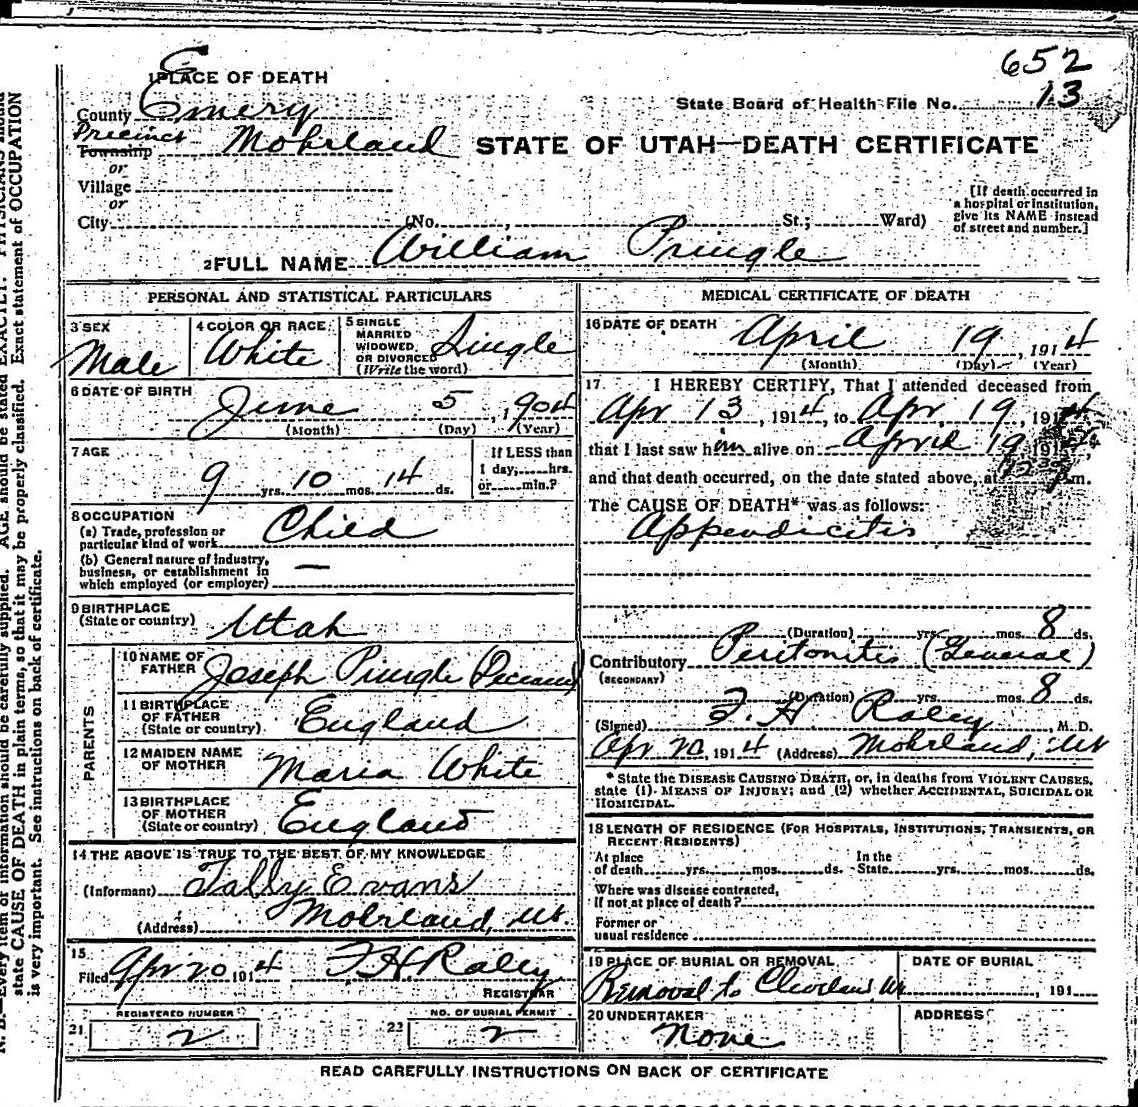 652
13
1 PLACE OF DEATH
County Emery
State Board of Health File No.
Precinct
Township Mohrland
STATE OF UTAH—DEATH CERTIFICATE
or
Village
or
City (No. , St.; Ward)
[If death occurred in
a hospital or institution,
give its NAME instead
of street and number.]
2 FULL NAME William Pringle
PERSONAL AND STATISTICAL PARTICULARS
3 SEX
Male
4 COLOR OR RACE
White
5 SINGLE
MARRIED
WIDOWED
OR DIVORCED
(Write the word)
Single
6 DATE OF BIRTH
June 5, 1904
(Month) (Day) (Year)
7 AGE
9 yrs. 10 mos. 14 ds.
If LESS than
1 day, hrs.
or min.?
8 OCCUPATION
(a) Trade, profession or
particular kind of work Child
(b) General nature of industry,
business, or establishment in
which employed (or employer) —
9 BIRTHPLACE
(State or country) Utah
PARENTS
10 NAME OF
FATHER Joseph Pringle
11 BIRTHPLACE
OF FATHER
(State or country) England
12 MAIDEN NAME
OF MOTHER Maria White
13 BIRTHPLACE
OF MOTHER
(State or country) England
14 THE ABOVE IS TRUE TO THE BEST OF MY KNOWLEDGE
(Informant) Tally Evans
(Address) Mohrland, Ut.
15
Filed Apr 20 1914 F H Raley
REGISTRAR
21 REGISTERED NUMBER
2
22 NO. OF BURIAL PERMIT
2
MEDICAL CERTIFICATE OF DEATH
16 DATE OF DEATH
April 19, 1914
(Month) (Day) (Year)
17. I HEREBY CERTIFY, That I attended deceased from
Apr 13, 1914, to Apr. 19, 1914
that I last saw him alive on April 19 1914
and that death occurred, on the date stated above, at m.
The CAUSE OF DEATH* was as follows:
Appendicitis
(Duration) yrs. mos. 8 ds.
Contributory Peritonitis (General)
(SECONDARY)
(Duration) yrs. mos. 8 ds.
(Signed) F. H Raley M. D.
Apr 20, 1914 (Address) Mohrland, Ut
* State the DISEASE CAUSING DEATH, or, in deaths from VIOLENT CAUSES,
state (1) MEANS OF INJURY; and (2) whether ACCIDENTAL, SUICIDAL OR
HOMICIDAL.
18 LENGTH OF RESIDENCE (FOR HOSPITALS, INSTITUTIONS, TRANSIENTS, OR
RECENT RESIDENTS)
At place
of death yrs. mos. ds.
In the
State yrs. mos. ds.
Where was disease contracted,
If not at place of death?
Former or
usual residence
19 PLACE OF BURIAL OR REMOVAL
Removal to Cleveland Ut
DATE OF BURIAL
, 191
20 UNDERTAKER
None
ADDRESS
READ CAREFULLY INSTRUCTIONS ON BACK OF CERTIFICATE
N. B.—Every item of information should be carefully supplied. AGE should be stated EXACTLY. PHYSICIANS should
state CAUSE OF DEATH in plain terms, so that it may be properly classified. Exact statement of OCCUPATION
is very important. See instructions on back of certificate.